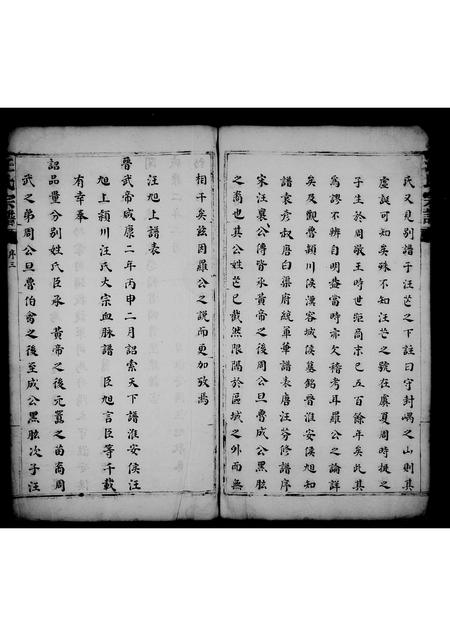 氏又見別譜子汪芒之下註曰守封嵎之山則其
虛誕可知矣殊不知汪芒之號在虞夏周時捷之
子生於周敬王時世距商末已五百餘年矣此其
為謬不辨自明盡當時亦欠稽考斗羅公之論詳
矣及觀魯頴川侯漢容城侯墓銘晉淮安侯旭知
譜表彥叔唐白渠府統軍華譜表唐汪芬修譜序
宋汪襄公傳皆承黃帝之後周公旦魯成公黑肱
之裔也其公姓芒已截然限隔於區域之外而無
相干矣茲因羅公之說而更加攷焉
汪旭上譜表
晉武帝咸康二年丙申二月詔索天下譜淮安侯汪
旭上頴川汪氏大宗血脉譜 臣旭言臣等千載
有幸奉
詔品量分別姓氏臣承 黃帝之後元囂之苗裔周
武之弟周公旦魯伯禽之後至成公黑肱次子汪
汪氏宗譜